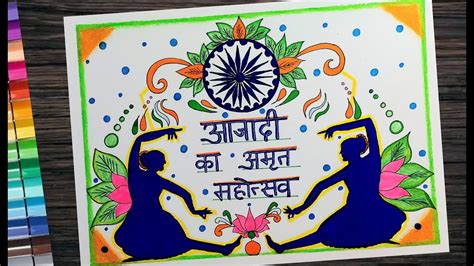 आजादी
का अमृत
महोत्सव